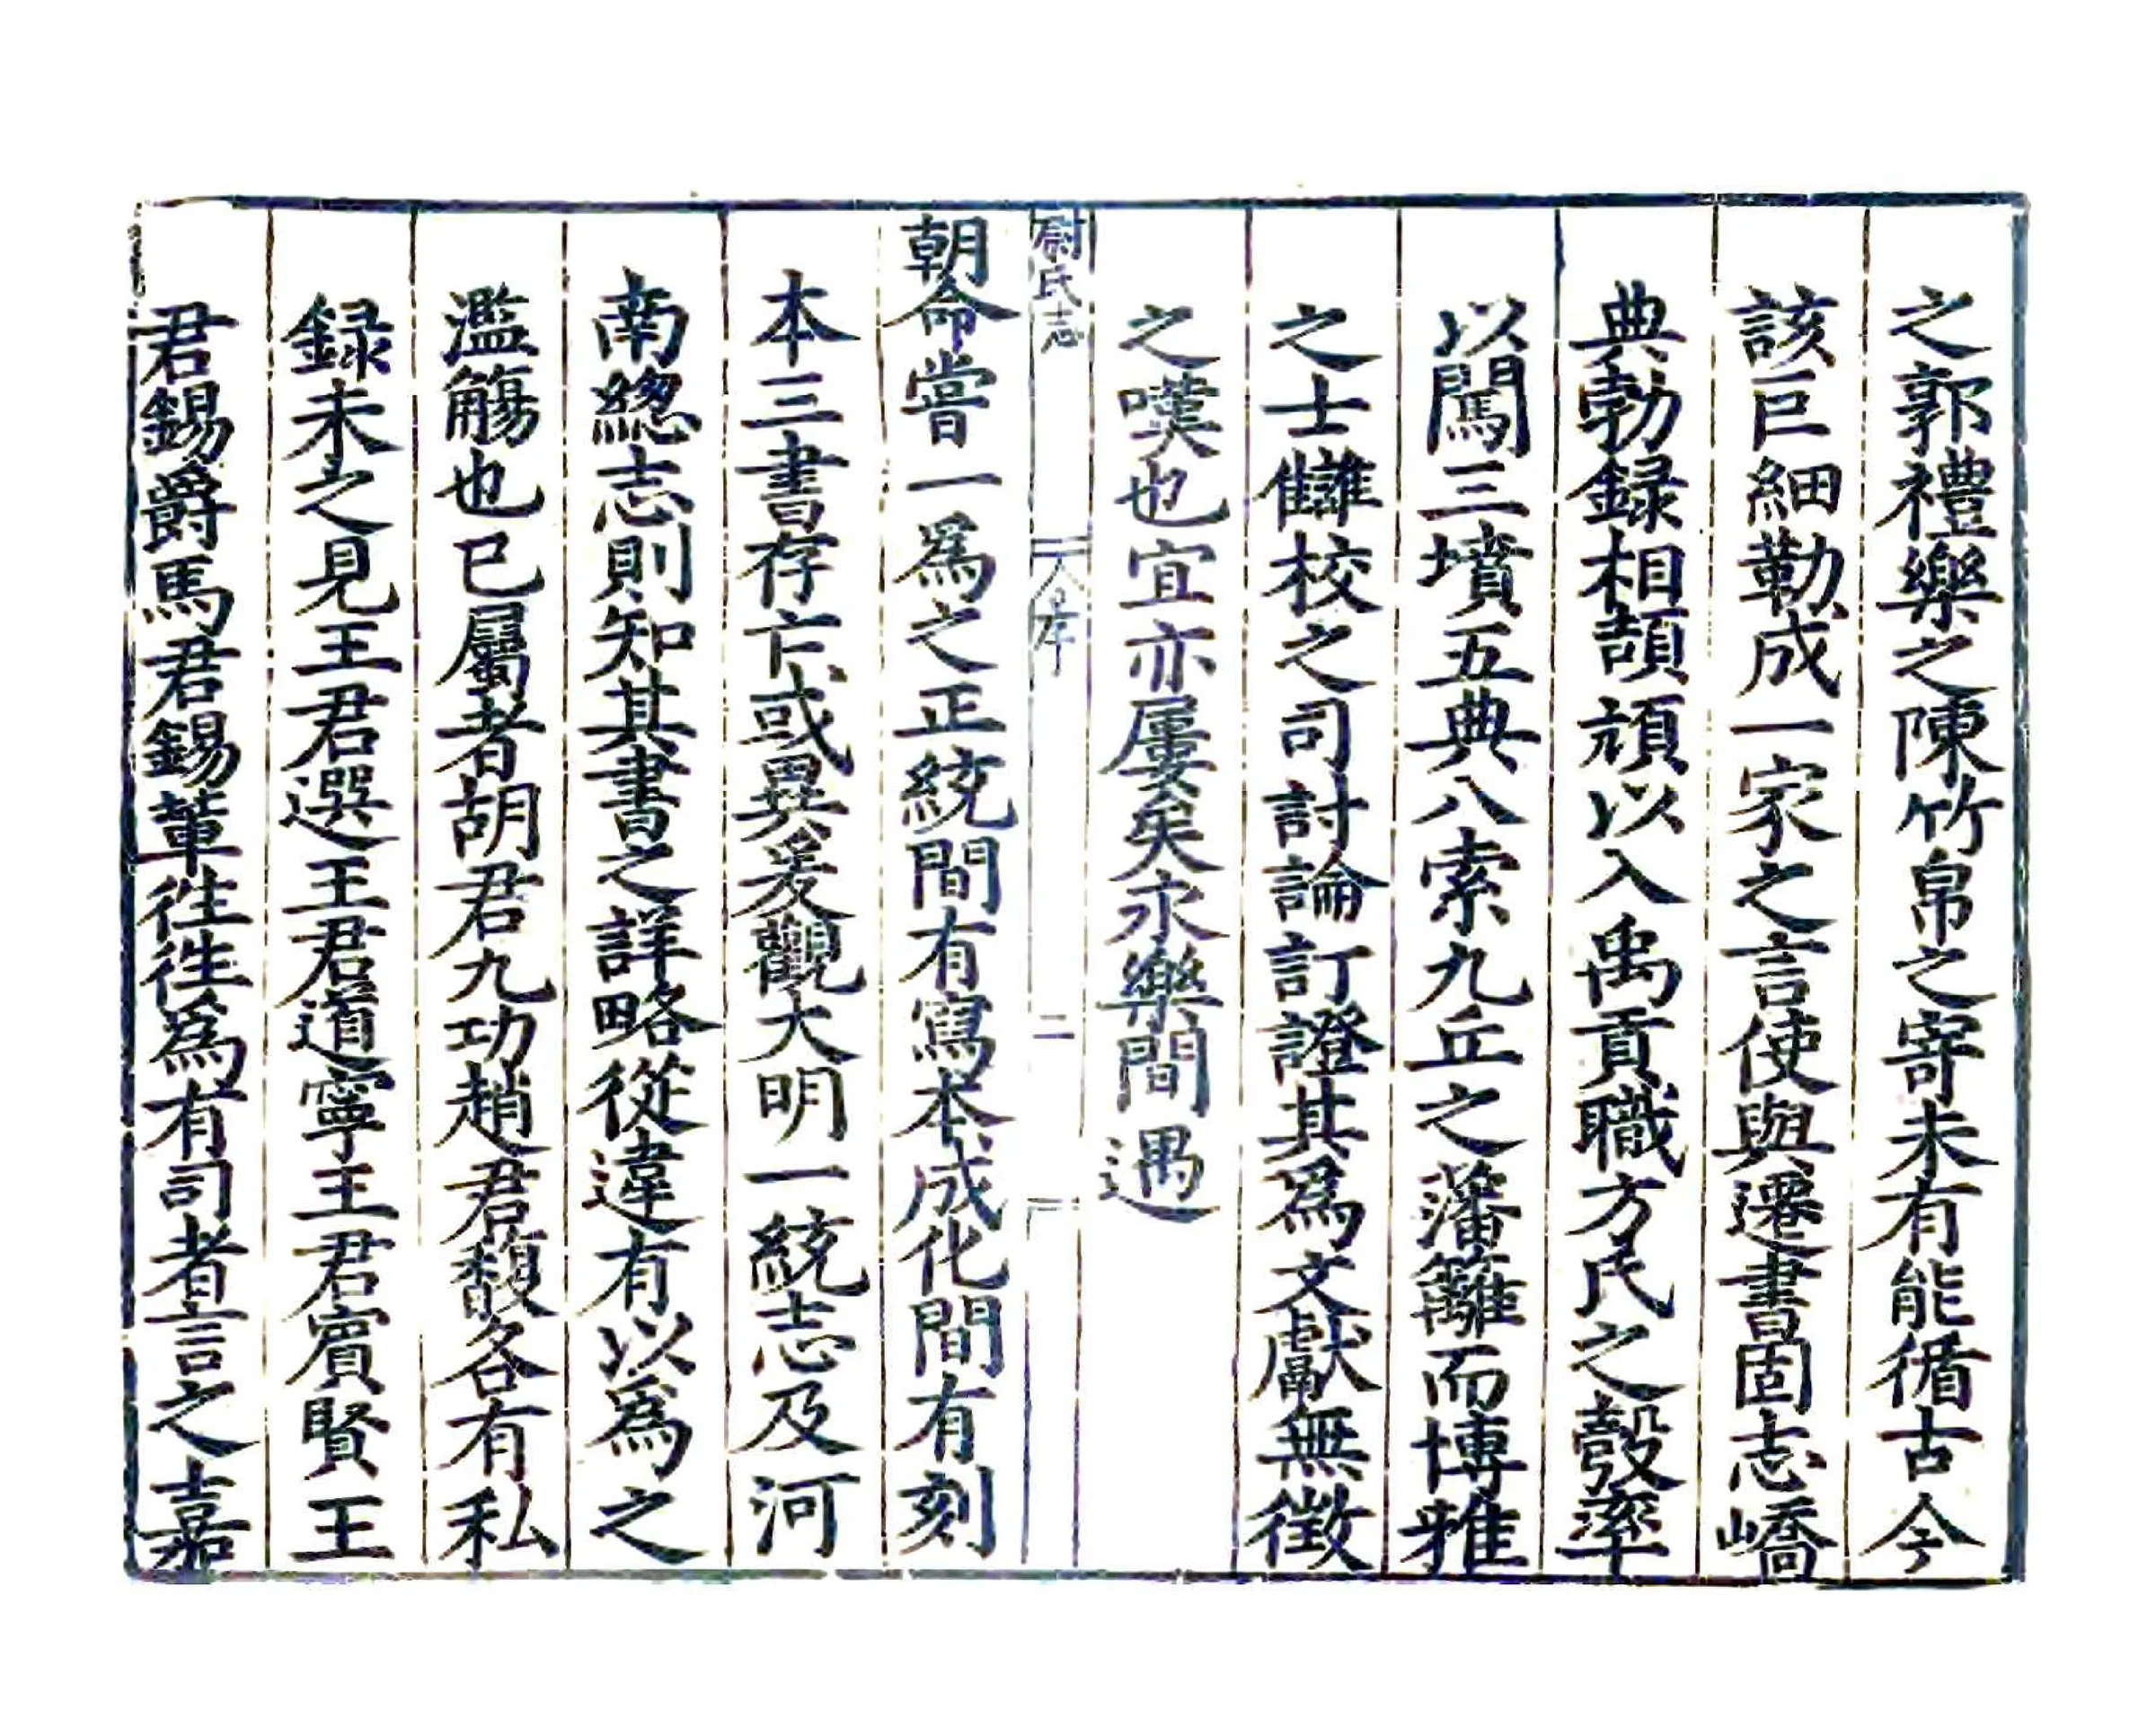 之郭禮樂之陳竹帛之寄未有能循古今
該巨細勒成一家之言使與遷書固志嶠
典勃録相頡頏以入禹貢職方氏之彀率
以闖三墳五典八索九丘之藩籬而博雅
之士讎校之司討論訂證其爲文獻無徵
之嘆也宜亦屢矣永樂間遇
尉氏志
二
朝命嘗一爲之正統間有寫本成化間有刻
本三書存亡或異爰觀大明一統志及河
南緫志則知其書之詳略從違有以爲之
濫觴也已屬者胡君九功趙君馥各有私
録未之見王君選王君道寧王君賔賢王
君錫爵馬君錫輩徃徃爲有司者言之嘉